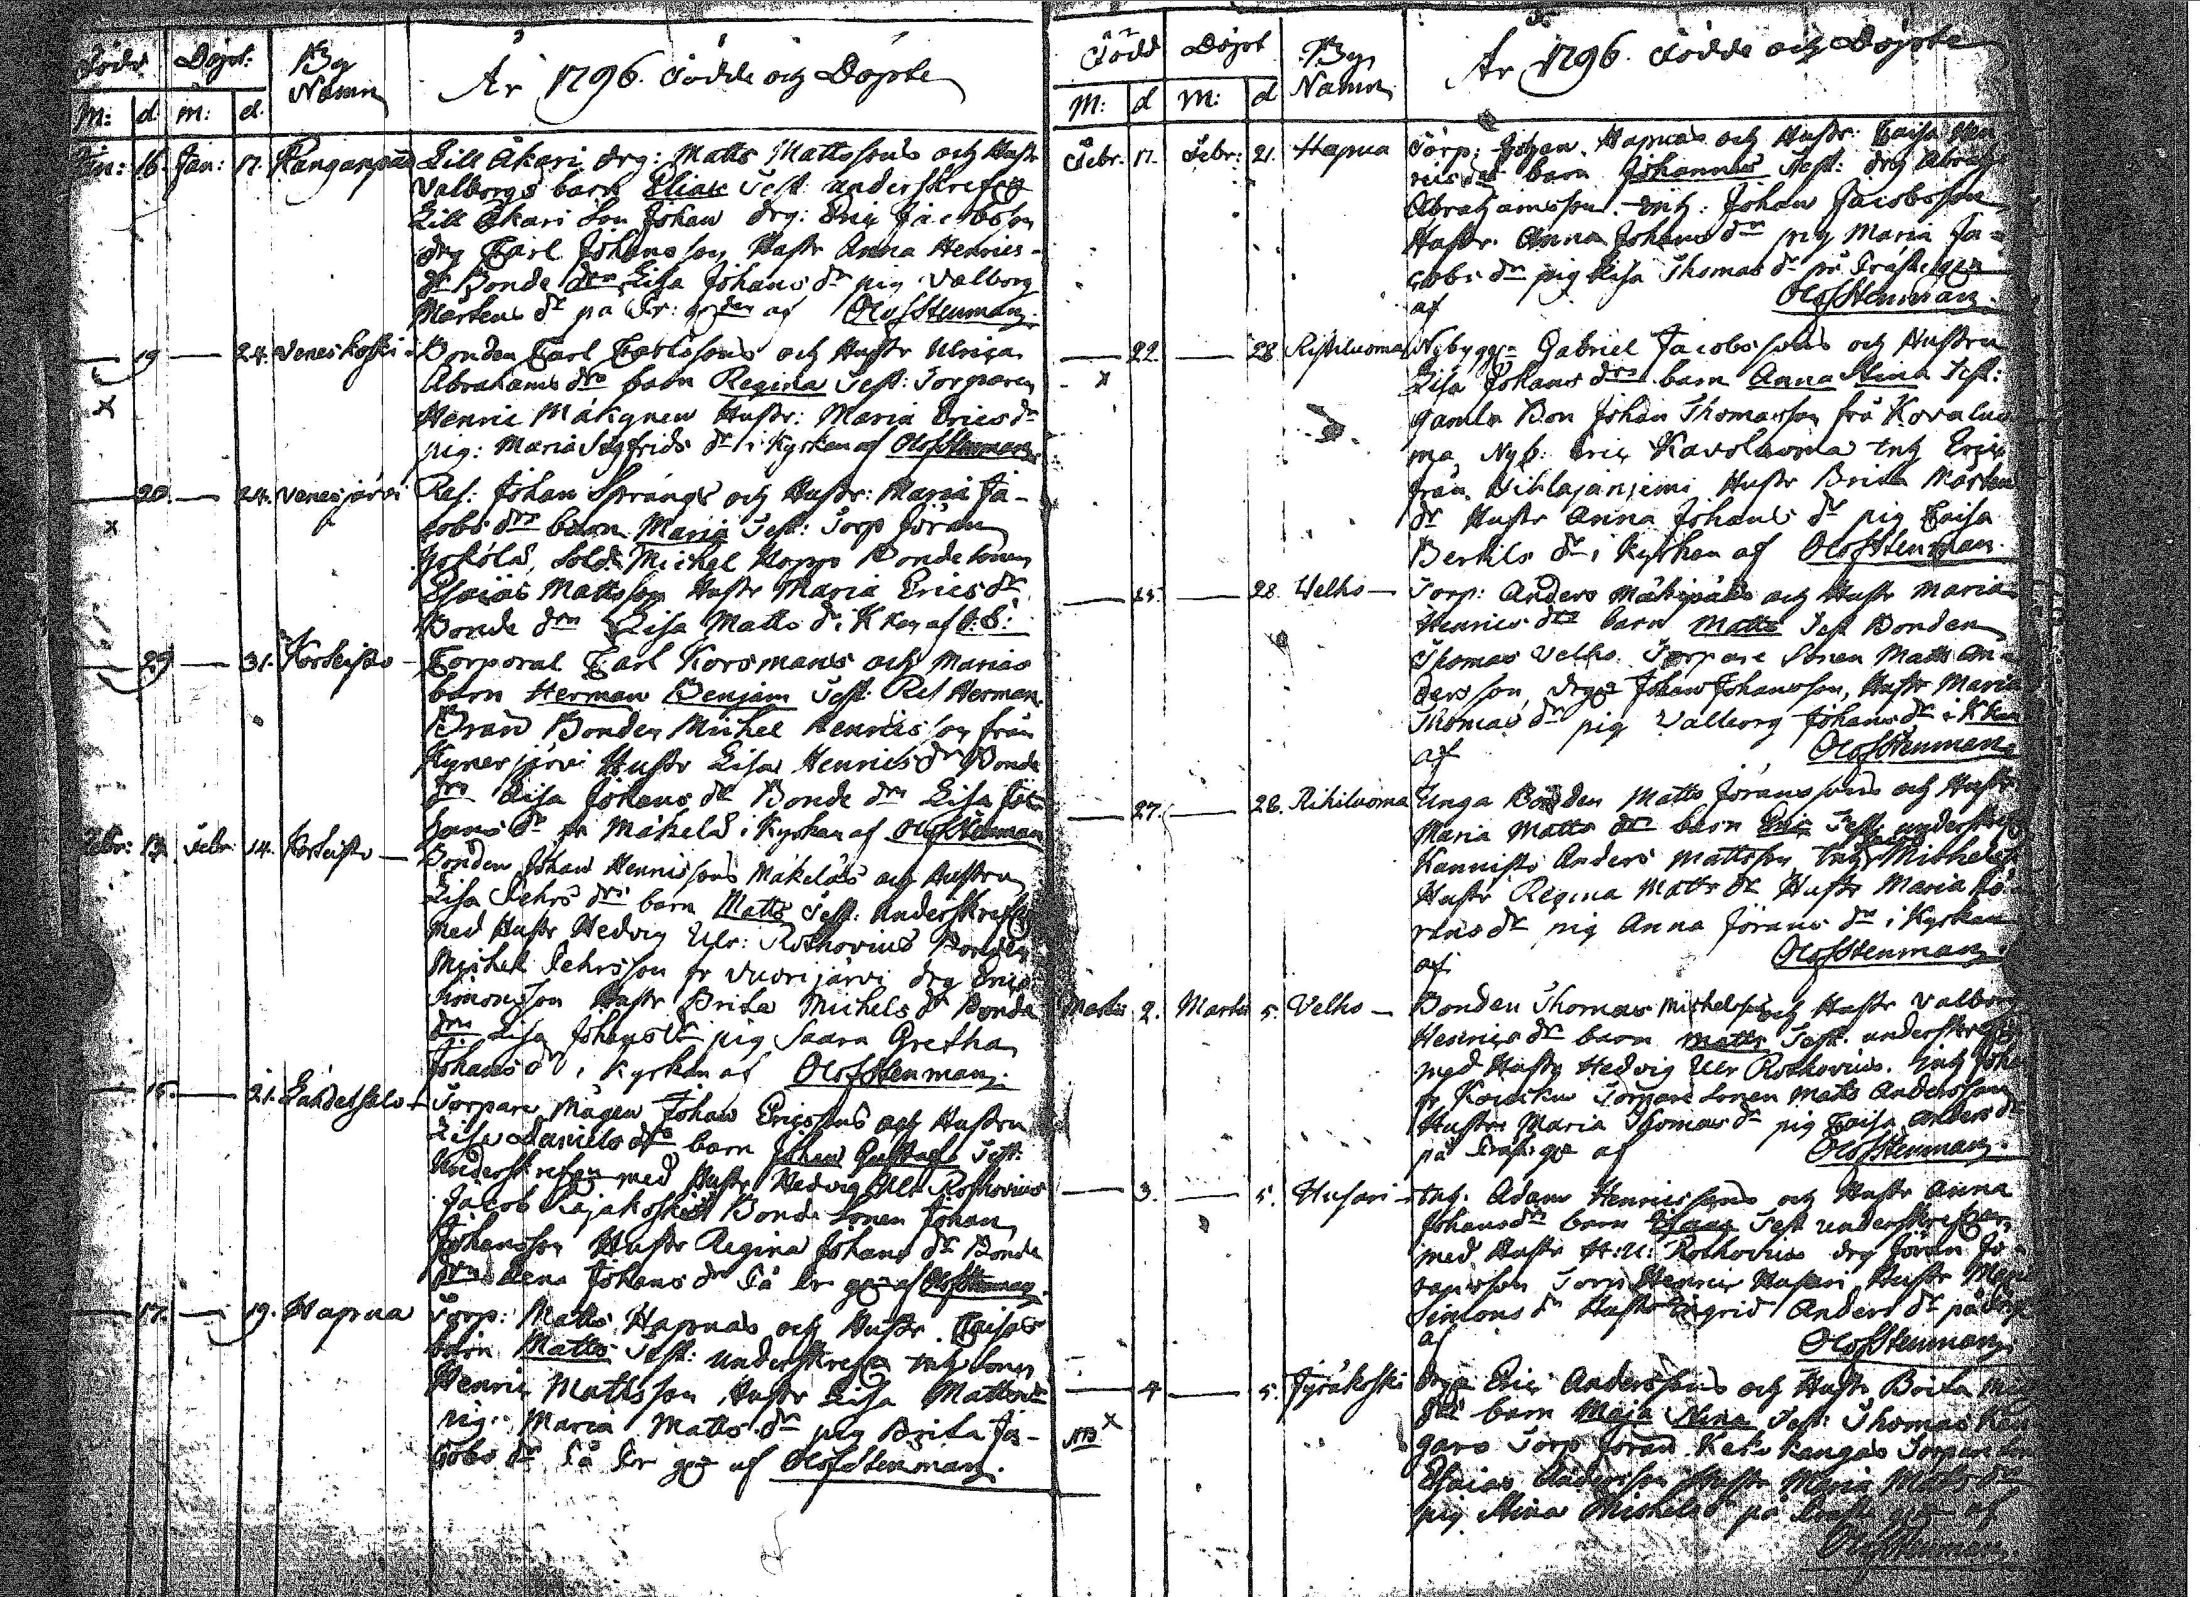 Född Döpt: By Namn År 1796. Födde och Döpte
M: d. M: d.
Jan: 16. Jan: 17. Kanganpää Lill Åkari drg: Matts Mattssons och Hustr
Valborgs barn Elias Test: underskrefne
Lill Åkari Son Johan drg: Eric Jacobsson
drg Carl Johansson, Hustr Anna Henrics-
dr Bonde drn Lisa Johans dr pig Valborg
Mårtens dr på Pr: g:den af Olof Stenman.
— 19 — 24. Veneskoski Bonden Carl Carlssons och Hustr Ulrica
Abrahams drs barn Regina Test: Torparen
Henric Mäkynen Hustr: Maria Erics dr
pig: Maria Sigfrids dr i Kyrkan af Olof Stenman.
— 20. — 24. Venesjärvi Ref: Johan Språngs och Hustr: Maria Ja-
cobs drs barn Maria Test: Torp Jöran
Yoskola, Sold: Michel Hopp Bonde Sonen
Esaias Mattsson Hustr Maria Erics dr
Bonde drn Lisa Matts d. i K kan af O: S:
— 29 — 31. Korhuisto Corporal Carl Korsmans och Marias
barn Herman Benjam Test: Ref Herman
Brand Bonden Michel Henricsson från
Kynerjärvi Hustr Lisa Henrics dr Bonde
drn Lisa Johans dr Bonde drn Lisa Jo-
hans dr fr Mäkelä i Kyrkan af Olof Stenman
Febr: 13. Febr 14. Bonden Johan Henricssons Mäkeläs och Hustrun
Lisa Pehrs drs barn Matts Test: underskrefne
med Hustr Hedvig Ulr: Rothovius Bonden
Michel Pehrsson fr Vuorijärvi drg Eric
Simonsson Hustr Brita Michels dr Bonde
drn Lisa Johans dr pig Saara Gretha
Johans dr i Kyrkan af Olof Stenman.
— 21. Torpare Mågen Johan Ericssons och Hustrun
Lisa Daniels drs barn Johan Gustaf Test:
underskrefne med Hustr Hedvig Ulr Rothovius
Jacob Rajakoski Bonde Sonen Johan
Johansson Hustr Regina Johans dr Bonde
drn Lena Johans dr På Pr gn af Olof Stenman.
— 17. — 19. Hapua Torp: Matts Hapuas och Hustr Caisas
barn Matts Test: underskrefne Inh Sonen
Henric Mattsson, Hustr Lisa Matts dr
pig: Maria Matts dr pig Brita Ja-
cobs dr På Pr gn af Olof Stenman.
Född Döpt By Namn År 1796. Födde och Döpte
M: d M: d
Febr. 17. Febr: 21. Hapua Torp: Johan Hapuas och Hustr: Caisa Hen-
rics drs barn Johannes Test: drg Abrah
Abrahamsson. Inh: Johan Jacobsson
Hustr. Anna Johans dr pig Maria Ja-
cobs dr pig Lisa Thomas dr på Präste gn
af Olof Stenman.
— 22. — 28 Ristiluoma Nybygg: Gabriel Jacobssons och Hustru
Lisa Johans drs barn Anna Stina Test:
gamla Bon Johan Thomasson frå Kovaluo
ma Nyb: Eric Kavoluoma Inh Eric
från Hustr Brita Mårtens
dr Hustr Anna Johans dr pig Caisa
Bertils dr i Kyrkan af Olof Stenman.
— — 28. Velho — Torp: Anders Mäkipääs och Hustr Maria
Henrics drs barn Matts Test Bonden
Thomas Velho. Torpare Sonen Matts An-
dersson, drg Johan Johansson, Hustr Maria
Thomas dr pig Valborg Johans dr i K kan
af Olof Stenman.
— 27. — 28. Riihiluoma Unga Bonden Matts Jöranssons och Hustr
Maria Matts drs barn Eric Test: underskref
Kannisto Anders Mattsson Inh: Michels
Hustr Regina Matts dr Hustr Maria Jö-
rens dr pig Anna Jörans dr i Kyrkan
af Olof Stenman.
Martii 2. Martii 5. Velho — Bonden Thomas Michelsson och Hustr Valborg
Henrics dr barn Matts Test: underskrefne
med Hustr Hedvig Ulr Rothovius. Inh Joh
fr Torpare Sonen Matts Andersson
Hustr: Maria Thomas dr pig Caisa Anders dr
på Präst gn af Olof Stenman.
— 3. — 5. Husari — Inh. Adam Henricssons och Hustr Anna
Johans drs barn Isaac Test underskrefne
med Hustr H: U: Rothovius drg Jöran Jö-
ransson Torp Henric Husari Hustr
Simons dr Hustr Ingrid Anders dr på
af Olof Stenman.
— 4 — 5. Jyräkoski drg: Eric Anderssons och Hustr Brita
drs barn Maja Stina Test: Thomas Kan
gars Torp Jöran Keko Kangas Torpare
Esaias Andersson Hustr Maria Matts dr
pig Stina Michels dr på Präste gn af
NB Olof Stenman